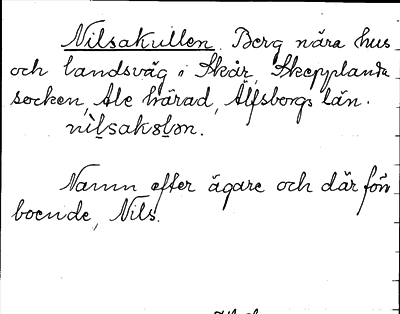 Nilsakullen. Berg nära hus
och landsväg i Skår, Skepplanda
socken, Ale härad, Älfsborgs län.
Namn efter ägare och där för
boende, Nils.